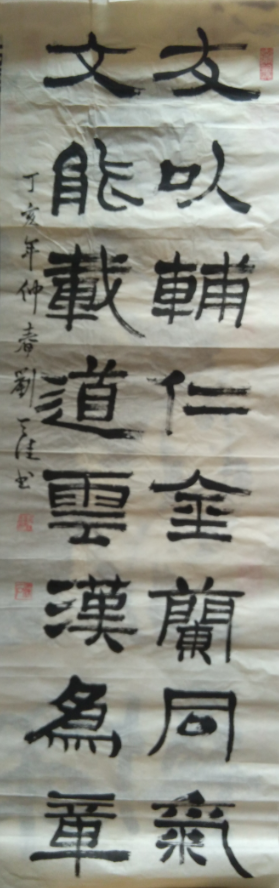 友以輔仁金蘭同氣
文能載道雲漢為章
丁亥年仲春劉 書